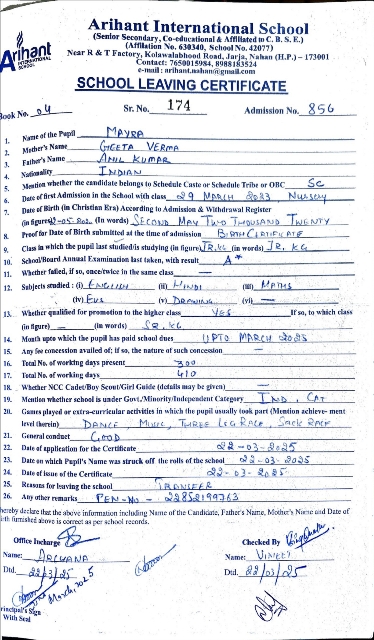 Arihant International School
(Senior Secondary, Co-educational & Affiliated to C. B. S. E.)
(Affiliation No. 630340, School No. 42077)
Near R & T Factory, Kolawalabhood Road, Jarja, Nahan (H.P.) – 173001
Contact: 7650015984, 8988183524
e-mail : arihant.nahan@gmail.com
Arihant
INTERNATIONAL SCHOOL
SCHOOL LEAVING CERTIFICATE
Book No. 04 Sr. No. 174 Admission No. 856
1. Name of the Pupil MAYRA
2. Mother's Name GEETA VERMA
3. Father's Name ANIL KUMAR
4. Nationality INDIAN
5. Mention whether the candidate belongs to Schedule Caste or Schedule Tribe or OBC SC
6. Date of first Admission in the School with class 29 MARCH 2023 NURSERY
7. Date of Birth (in Christian Era) According to Admission & Withdrawal Register
(in figure) 02-05-202 (In words) SECOND MAY TWO THOUSAND TWENTY
8. Proof for Date of Birth submitted at the time of admission BIRTH CERTIFICATE
9. Class in which the pupil last studied/is studying (in figure) JR.KG (in words) JR. KG
10. School/Board Annual Examination last taken, with result A*
11. Whether failed, if so, once/twice in the same class —
12. Subjects studied : (i) ENGLISH (ii) HINDI (iii) MATHS
(iv) EVS (v) DRAWING (vi) —
13. Whether qualified for promotion to the higher class YES If so, to which class
(in figure) — (in words) SR. KG
14. Month upto which the pupil has paid school dues UPTO MARCH 2025
15. Any fee concession availed of; if so, the nature of such concession —
16. Total No. of working days present 200
17. Total No. of working days 210
18. Whether NCC Cadet/Boy Scout/Girl Guide (details may be given) —
19. Mention whether school is under Govt./Minority/Independent Category IND. CAT
20. Games played or extra-curricular activities in which the pupil usually took part (Mention achieve- ment
level therein) DANCE, MUSIC, THREE LEG RACE, SACK RACE
21. General conduct GOOD
22. Date of application for the Certificate 22-03-2025
23. Date on which Pupil's Name was struck off the rolls of the school 22-03-2025
24. Date of issue of the Certificate 22-03-2025
25. Reasons for leaving the school TRANSFER
26. Any other remarks PEN-NO - 22852199763
hereby declare that the above information including Name of the Candidate, Father's Name, Mother's Name and Date of
irth furnished above is correct as per school records.
Office Incharge Checked By
Name: ARCHANA Name: VINEET
Dtd. 22/03/25 Dtd. 22/03/25
March 2025
rincipal's Sign
With Seal